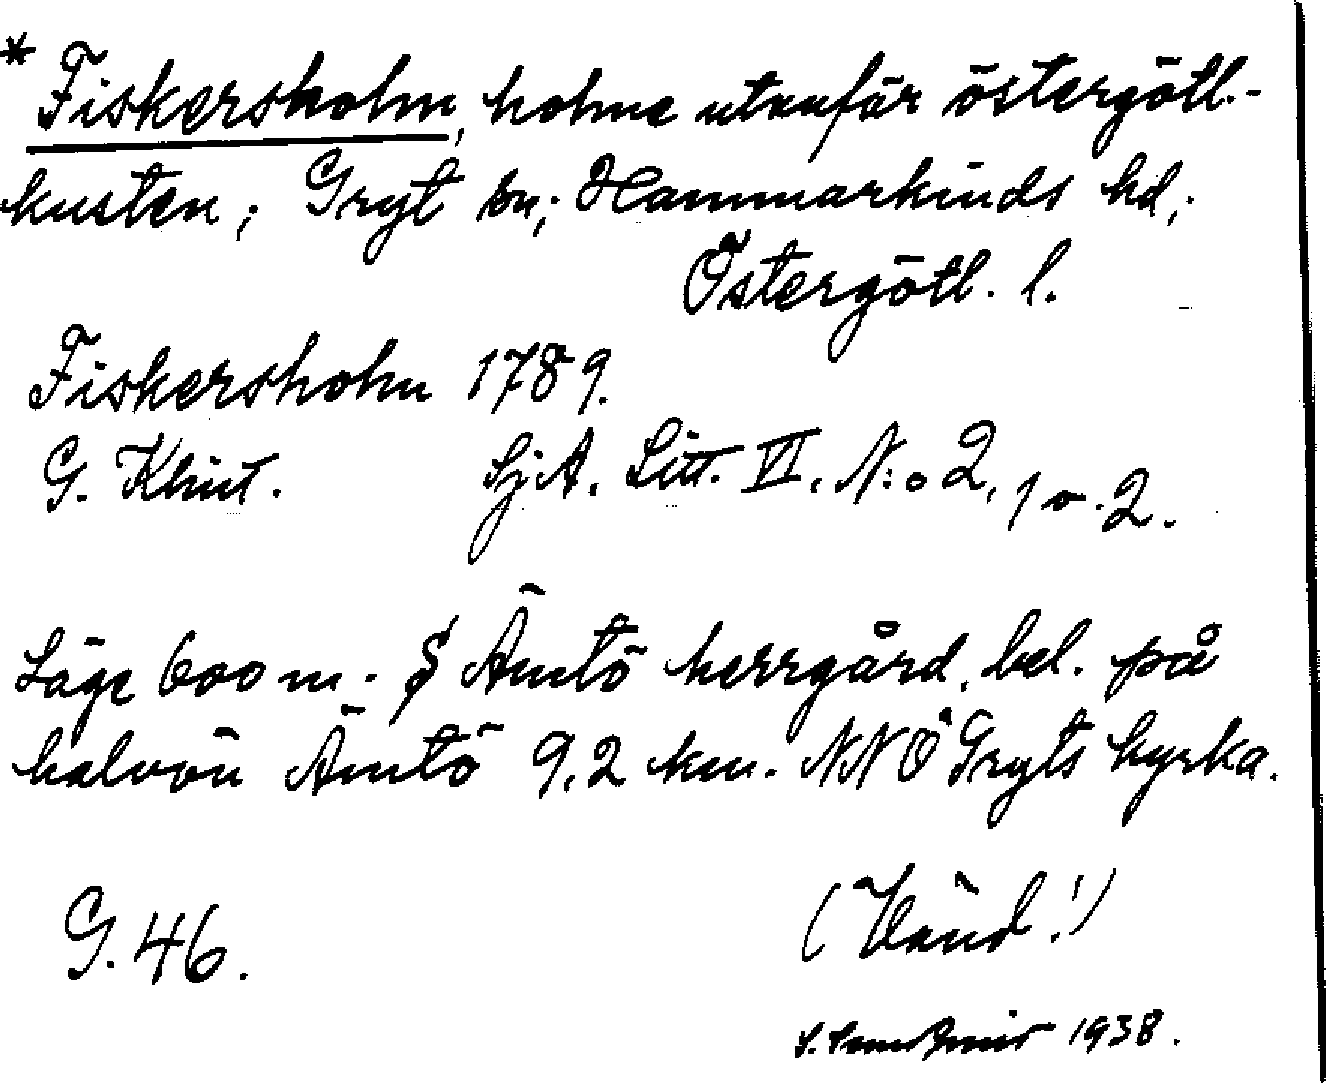 * Fiskersholm, holme utanför östergötl.-
kusten; Gryt sn; Hammarkinds hd;
Östergötl. l.
Fiskersholm 1789.
G. Klint. SjA. Litt. VI. N:o 2, 1 o. 2.
Läge 600 m. S Ämtö herrgård, bel. på
halvön Ämtö 9,2 km. NNO Gryts kyrka.
(Vänd!)
G. 46.
1938.